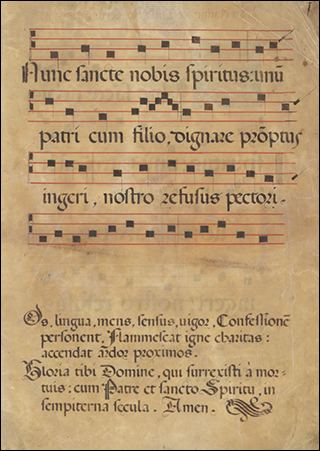 Nunc sancte nobis spiritus: unũ
patri cum filio, dignare prõptus
ingeri, nostro refusus pectori.
Os, lingua, mens, sensus, vigor, Confessionẽ
personent, Flammescat igne charitas:
accendat ardor proximos.
Gloria tibi Domine, qui surrexisti à mor-
tuis: cum Patre et sancto Spiritu, in
sempiterna secula. Amen.